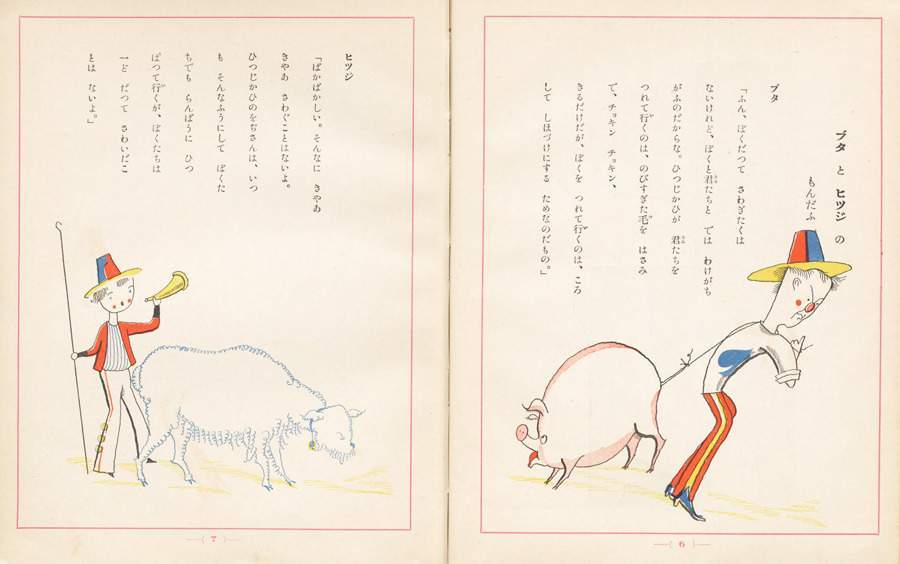 ブタ と ヒツジ の
もんだふ
ブタ
「ふん、ぼくだつて さわぎたくは
ないけれど、ぼくと君たちと では わけがち
がふのだからな。ひつじかひが 君たちを
つれて行くのは、のびすぎた毛を はさみ
で、チョキン チョキン、
きるだけだが、ぼくを つれて行くのは、ころ
して しほづけにする ためなのだもの。」
6
ヒツジ
「ばかばかしい。そんなに きやあ
きやあ さわぐことはないよ。
ひつじかひのをぢさんは、いつ
も そんなふうにして ぼくた
ちでも らんばうに ひつ
ぱつて行くが、ぼくたちは
一ど だつて さわいだこ
とは ないよ。」
7